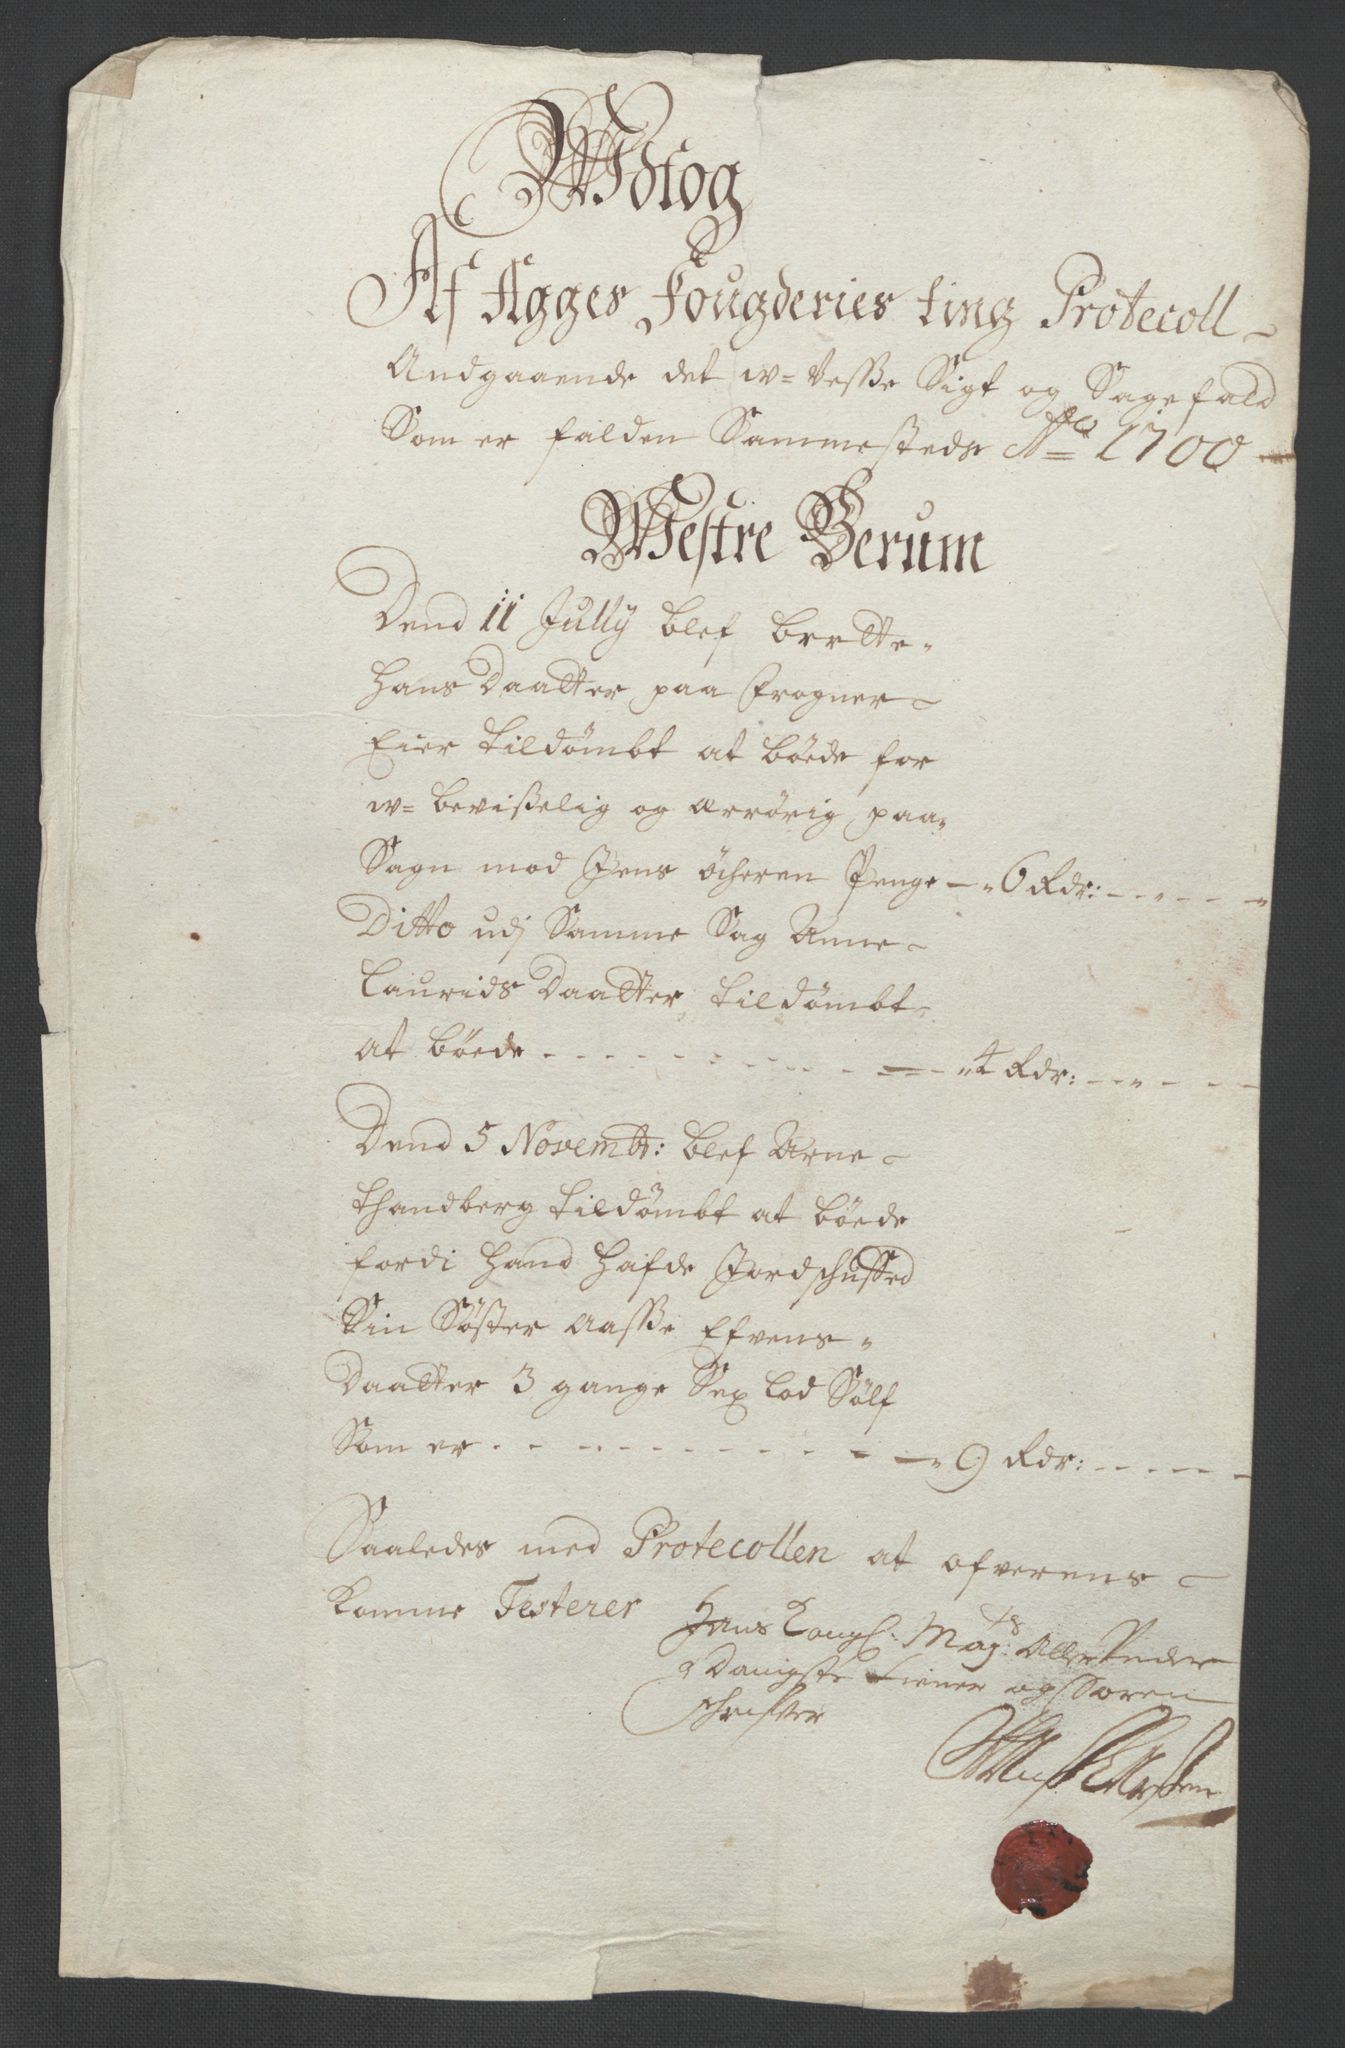 Wdtog
Af Agges Fougderies ting Protecoll
Andgaaende det w=visse Sigt og Sagefald
Som er falden Sammesteds Ao 1700
Westre Berum
Dend 11 Jully blef brette
Hans Daatter paa Frogner
Eier tildömbt at böede for
w=bevißelig og ærrörig paa
Sagn mod Jens öcheren Penge - 6 Rdr:
Ditto udj Samme Sag Anne
Laurids Daatter tildömbt
at böede - 4 Rdr:
Dend 5 Novembr: blef Arne
thandberg tildömbt at böede
fordi hand hafde Jordschusßed
Sin Söster Aasße Efvens
Daatter 3 gange Sex lod Sölf
Som er - 9 Rdr:
Saaledes med Protecollen at ofverens
komme Testerer
Hans Kongl. Maj:ts Aller Under
Danigste tiener og Soren
schrifver